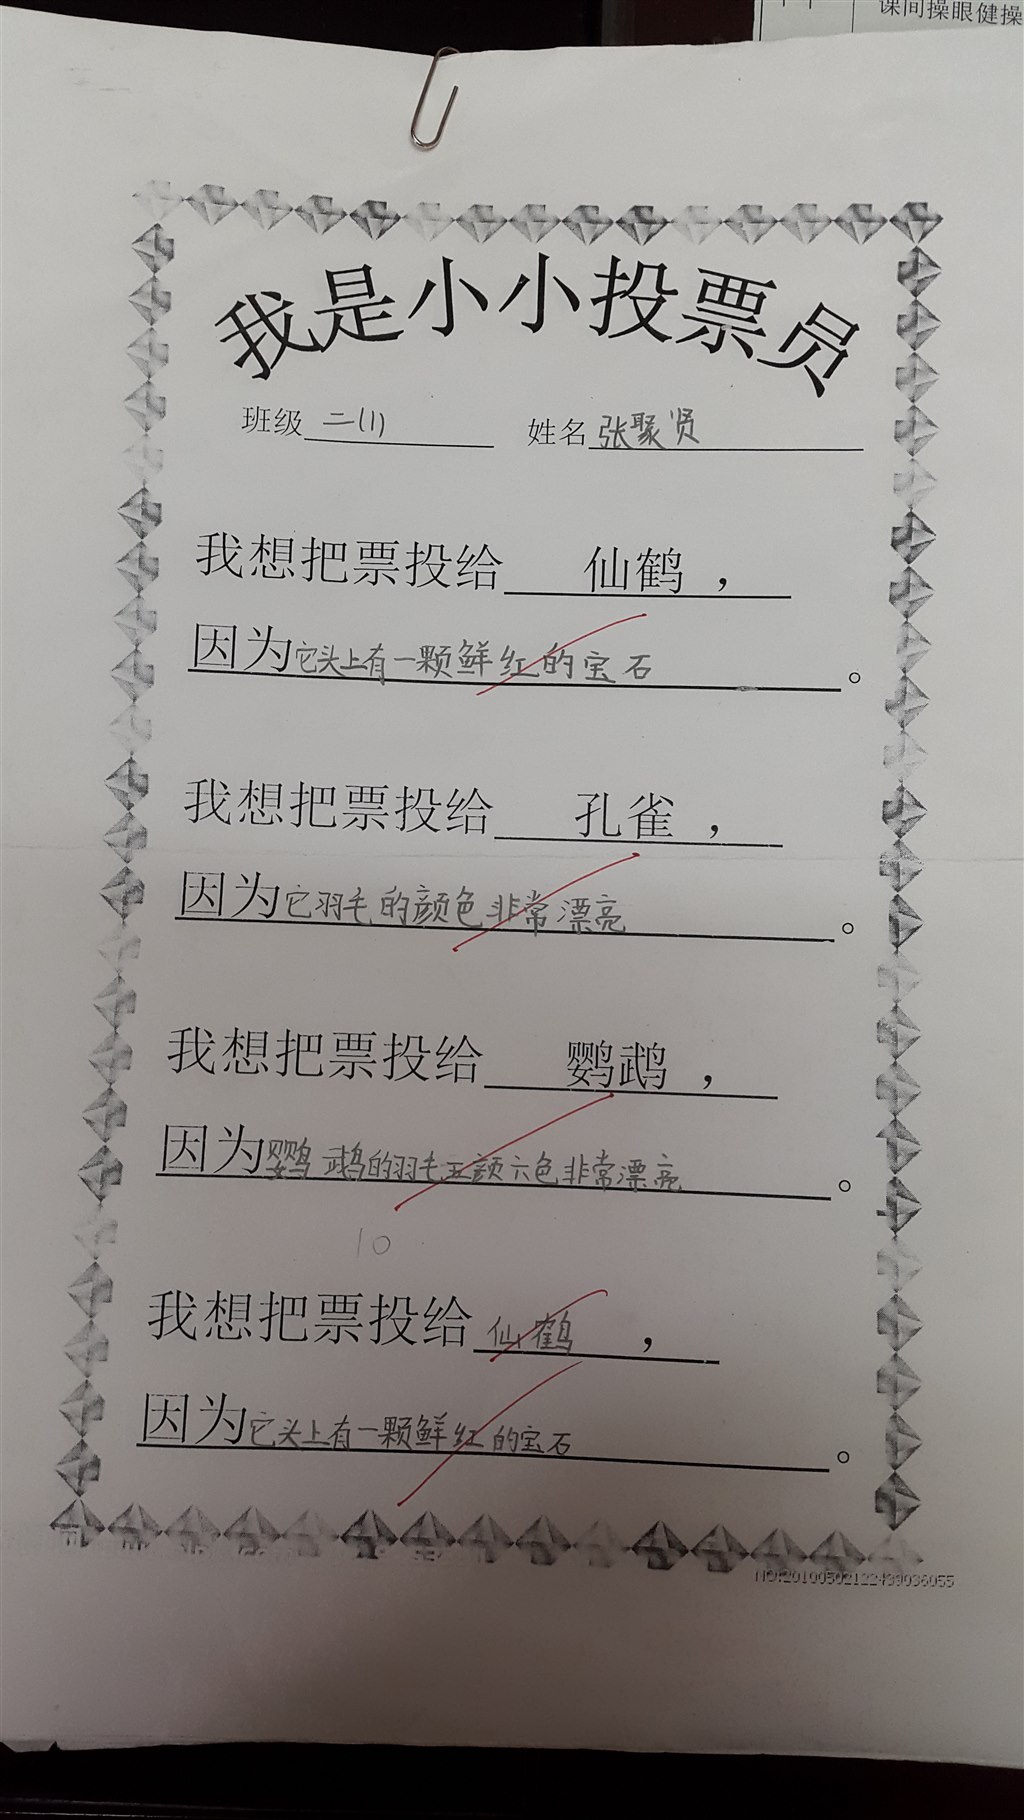 课间操眼健操
我是小小投票员
班级 二(1) 姓名 张聚贤
我想把票投给 仙鹤 ，
因为它头上有一颗鲜红的宝石。
我想把票投给 孔雀 ，
因为它羽毛的颜色非常漂亮。
我想把票投给 鹦鹉 ，
因为鹦鹉的羽毛五颜六色非常漂亮。
10
我想把票投给 仙鹤 ，
因为它头上有一颗鲜红的宝石。
NO:20100502122439036055